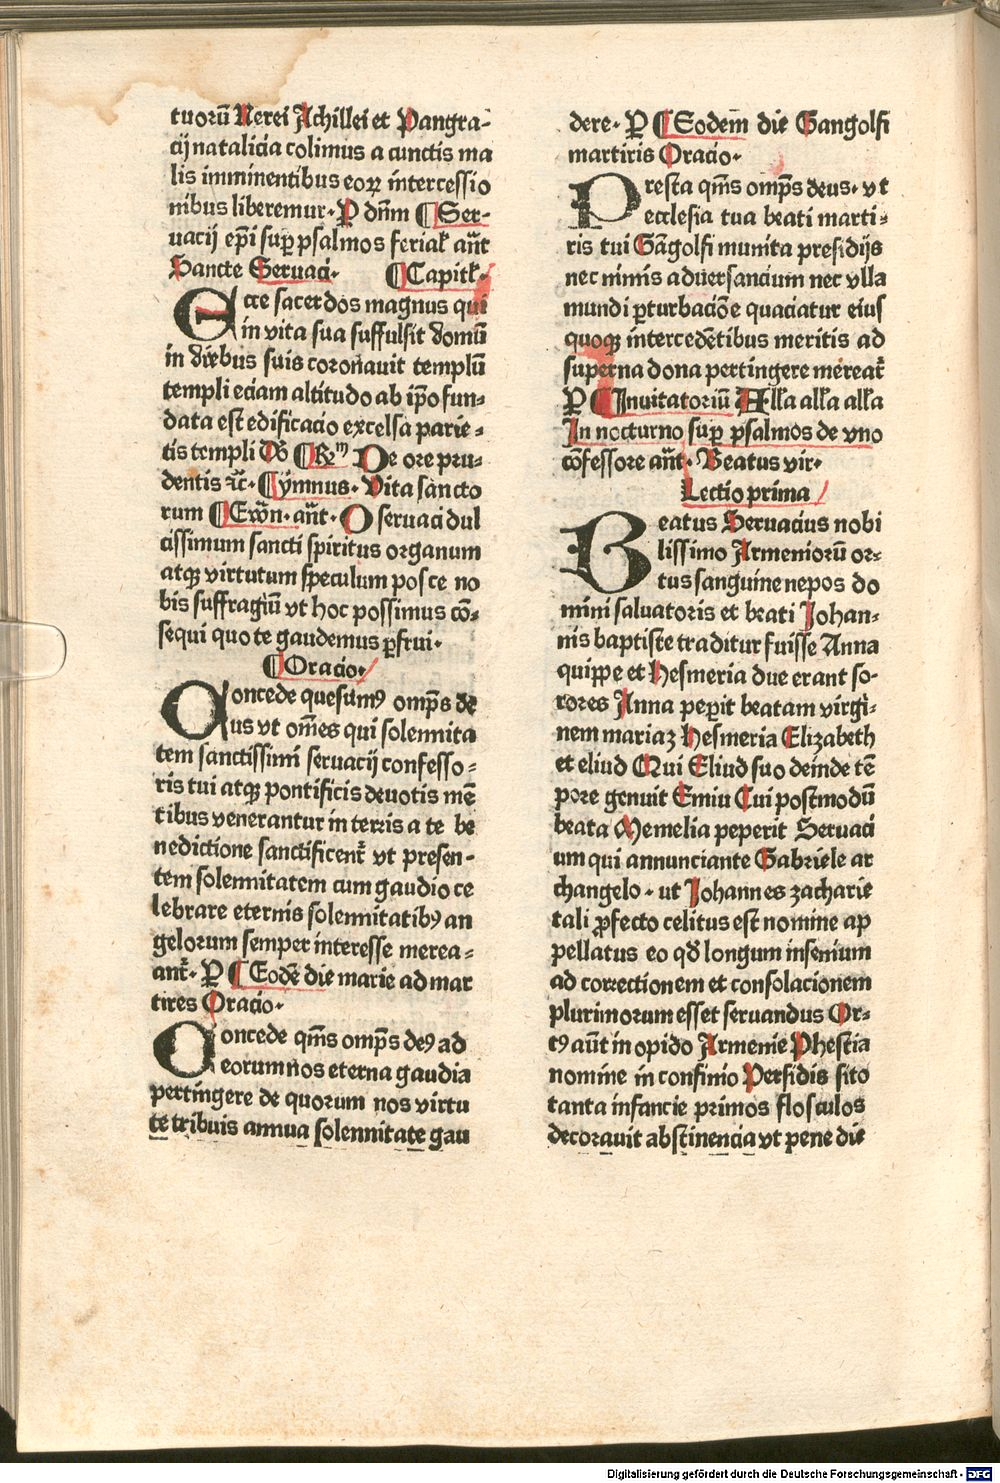 tuorū Nerei Achillei et Pangra-
cij natalicia colimus a cunctis ma
lis imminentibus eoꝝ intercessio
nibus liberemur. P dn̄m ¶ Ser-
uacij ep̄i suꝑ psalmos ferial̓ an̄t
Sancte Seruaci. ¶ Capitl̓.
Ecce sacerdos magnus qui
in vita sua suffulsit domū
in diebus suis coronauit templū
templi eciam altitudo ab ip̄o fun-
data est edificacio excelsa parie-
tis templi ¶ De ore pru-
dentis ⁊c̄. ¶ ymnus. Vita sancto
rum ¶ Ew̄n. an̄t. O seruaci dul
cissimum sancti spiritus organum
atqꝫ virtutum speculum posce no
bis suffragiū vt hoc possimus cō-
sequi quo te gaudemus ꝑfrui.
¶ Oracio.
Concede quesumꝰ omp̄s de
us vt om̄es qui solennita
tem sanctissimi seruacij confesso-
ris tui atqꝫ pontificis deuotis mē
tibus venerantur in terris a te be
nedictione sanctificent᷑ vt presen-
tem solennitatem cum gaudio ce
lebrare eternis solennitatibꝰ an
gelorum semper interesse merea-
ant᷑. P ¶ Eodē die marie ad mar
tires Oracio.
Concede qm̄s omp̄s deꝰ ad
eorum nos eterna gaudia
pertingere de quorum nos virtu
te tribuis annua solennitate gau
dere. P ¶ Eodem̄ die Gangolfi
martiris Oracio.
Presta qm̄s omp̄s deus. vt
ecclesia tua beati marti-
ris tui Gāgolfi munita presidijs
nec nimis aduersancium nec vlla
mundi ꝑturbaciōe quaciatur eius
quoqꝫ intercedētibus meritis ad
superna dona pertingere mereat᷑
P ¶ Inuitatoriū All̓a all̓a all̓a
In nocturno suꝑ psalmos de vno
cōfessore an̄t. Beatus vir.
Lectio prima
Beatus Seruacius nobi
lissimo Armeniorū or-
tus sanguine nepos do
mini saluatoris et beati Johan-
nis baptiste traditur fuisse Anna
quippe et hesmeria due erant so-
rores Anna peꝑit beatam virgi-
nem mariaꝫ hesmeria Elizabeth
et eliud Qui Eliud suo deinde tē
pore genuit Emiu Cui postmodū
beata Memelia peperit Seruaci
um qui annunciante Gabriele ar
changelo. ut Johannes zacharie
tali ꝓfecto celitus est nomine ap
pellatus eo qd̄ longum insenium
ad correctionem et consolacionem
plurimorum esset seruandus Or-
tꝰ aūt in opido Armenie Phestia
nomine in confinio Persidis sito
tanta infancie primos flosculos
decorauit abstinencia vt pene die
Digitalisierung gefördert durch die Deutsche Forschungsgemeinschaft - DFG